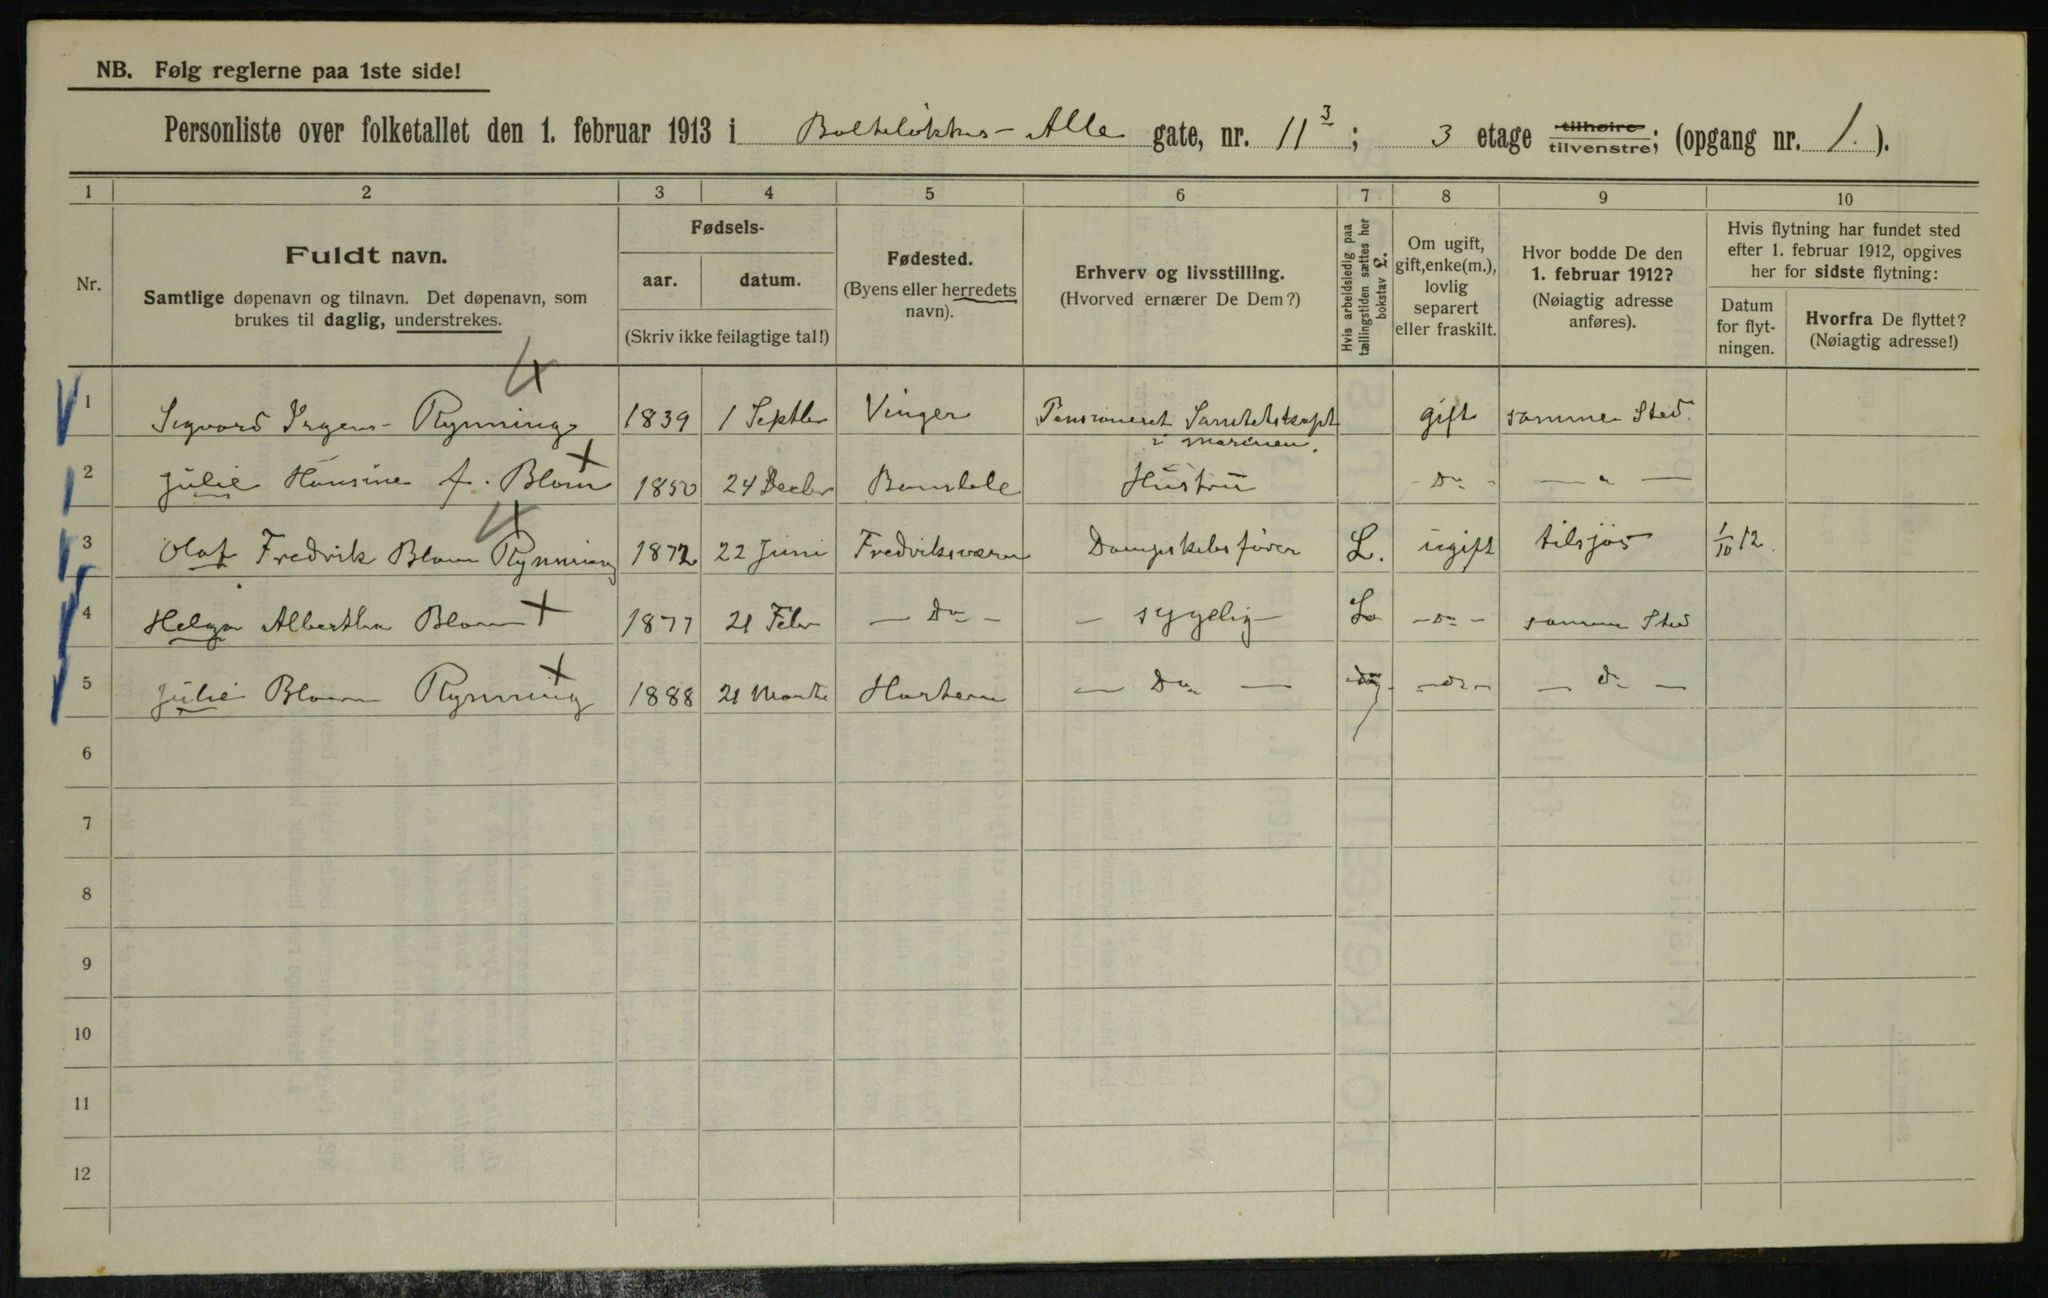 NB. Følg reglerne paa 1ste side!
Personliste over folketallet den 1. februar 1913 i Bolteløkkens-Alle gate, nr. 11 3; 3 etage tilhøire tilvenstre; (opgang nr. 1.).
1 2 3 4 5 6 7 8 9 10
Nr.
Fuldt navn.
Samtlige døpenavn og tilnavn. Det døpenavn, som
brukes til daglig, understrekes.
Fødsels-
aar. datum.
(Skriv ikke feilagtige tal!)
Fødested.
(Byens eller herredets
navn).
Erhverv og livsstilling.
(Hvorved ernærer De Dem?)
Hvis arbeidsledig paa
tællingstiden sættes her
bokstav L.
Om ugift,
gift, enke(m.),
lovlig
separert
eller fraskilt.
Hvor bodde De den
1. februar 1912?
(Nøiagtig adresse
anføres).
Hvis flytning har fundet sted
efter 1. februar 1912, opgives
her for sidste flytning:
Datum
for flyt-
ningen.
Hvorfra De flyttet?
(Nøiagtig adresse!)
1 Sigvard Irgens- Rynning 1839 1 Septbr Vinger Pensioneret Sanitetskapt gift samme Sted.
i marinen.
2 Julie Hansine f. Blom 1850 24 Decbr Hustru - Do - — " —
3 Olaf Fredrik Blom Rynning 1872 22 Juni Fredriksværn Dampskibsfører L. ugift tilsjøs 1/10 12.
4 Helga Albertha Blom 1877 21 Febr — Do — - sygelig - L. - Do - samme Sted
5 Julie Blom Rynning 1888 21 Marts Horten — Do — - do - — do —
6
7
8
9
10
11
12